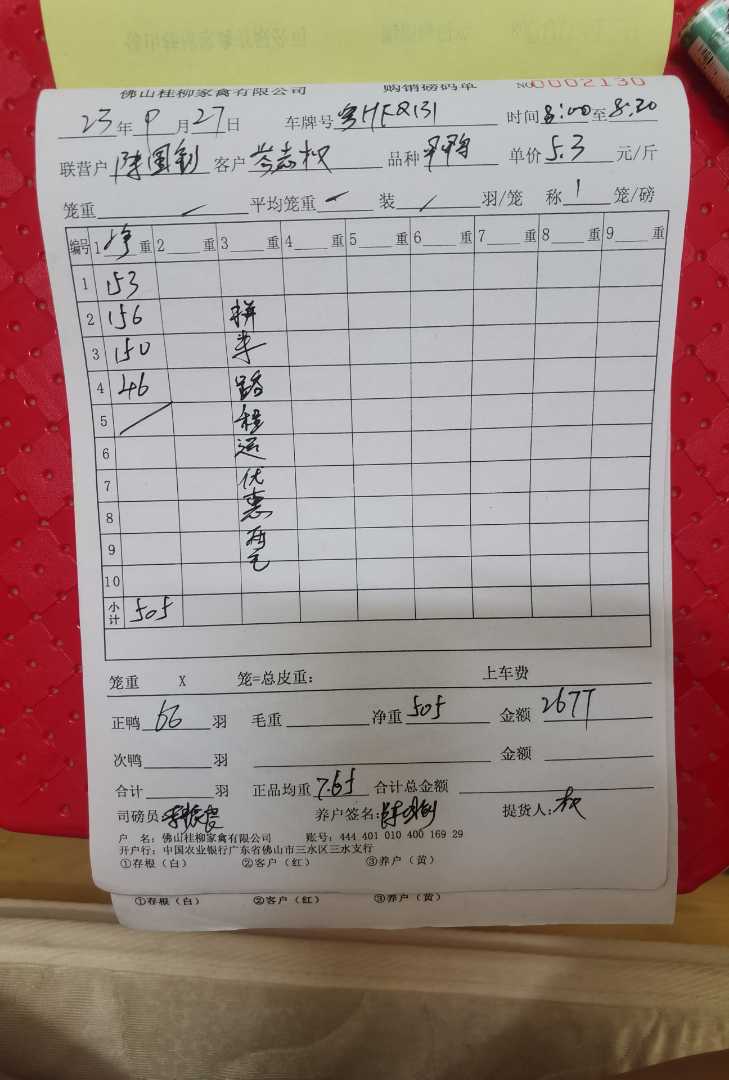 佛山桂柳家禽有限公司 购销磅码单 NO0002130
23年9月27日 车牌号粤HF8131 时间8:00至8:20
联营户 陈国钊 客户 岑志权 品种 单价5.3元/斤
笼重 平均笼重 装 羽/笼 称1笼/磅
编号 1净重 2重 3重 4重 5重 6重 7重 8重 9重
1 153
2 156 拼
3 150 车
4 46 路
5 程
6 运
7 优
8 惠
9 两
10 毛
小计 505
笼重 X 笼=总皮重: 上车费
正鸭66羽 毛重 净重505 金额2677
次鸭 羽 金额
合计 羽 正品均重7.65 合计总金额
司磅员: 养户签名: 提货人:权
户 名: 佛山桂柳家禽有限公司 账号: 444 401 010 400 169 29
开户行: 中国农业银行广东省佛山市三水区三水支行
①存根(白) ②客户(红) ③养户(黄)
①存根(白) ②客户(红) ③养户(黄)